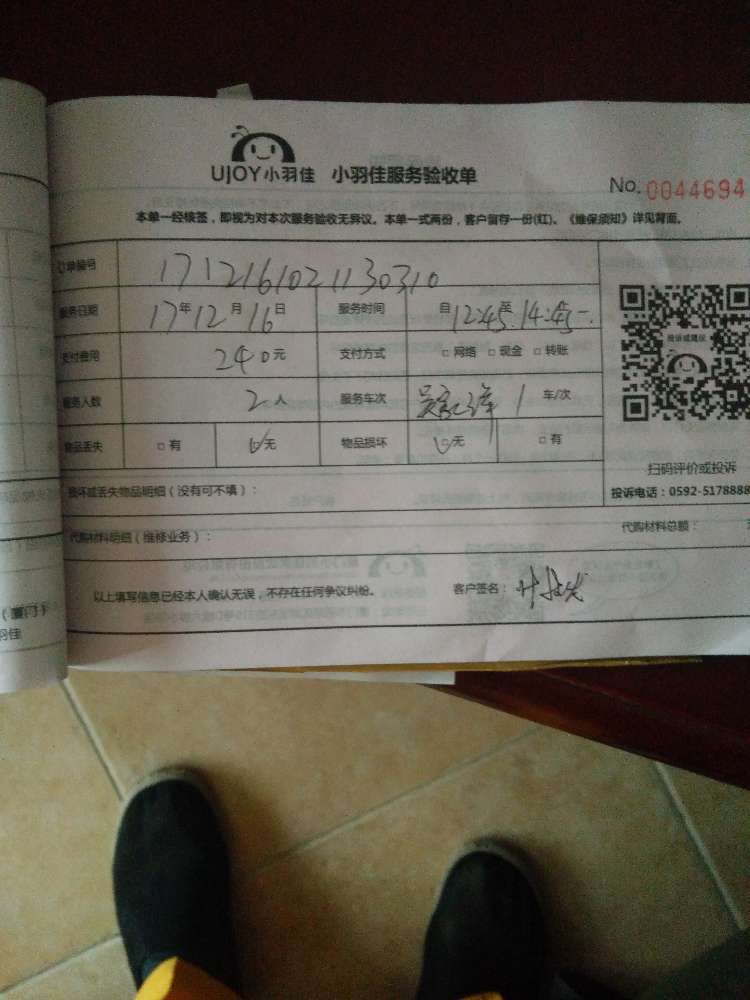 UJOY小羽佳 小羽佳服务验收单 No. 0044694
本单一经核签，即视为对本次服务验收无异议。本单一式两份，客户留存一份(红)。《维保须知》详见背面。
订单编号 1712161021130310
服务日期 17年12月16日 服务时间 自12:45至14:45
支付费用 240元 支付方式 □网络 □现金 □转账
服务人数 2人 服务车次 1 车/次
物品丢失 □有 □无 物品损坏 □无 □有
损坏或丢失物品明细（没有可不填）：
扫码评价或投诉
投诉电话：0592-5178888
代购材料明细（维修业务）： 代购材料总额：
以上填写信息已经本人确认无误，不存在任何争议纠纷。 客户签名：
投诉或建议
（厦门）
羽佳